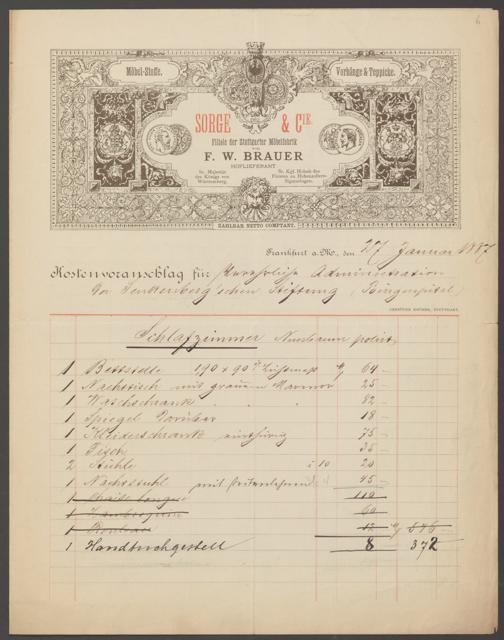 6
Möbel-Stoffe.
Vorhänge & Teppiche.
SORGE & CIE.
Filiale der Stuttgarter Möbelfabrik
von
F. W. BRAUER
HOFLIEFERANT
Sr. Majestät des Königs von Württemberg.
Sr. Kgl. Hoheit des Fürsten zu Hohenzollern-Sigmaringen.
ZAHLBAR NETTO COMPTANT.
Frankfurt a./M., den 27 Januar 1887
Kostenvoranschlag für Verehrliche Administration
der Senckenberg'schen Stiftung (Bürgerspital)
STUTTGART.
Schlafzimmer Nussbaum polirt
1 Bettstelle 190 + 90 Lichtmaß M 64 –
1 Nachttisch mit grauem Marmor 25 –
1 Waschschrank " " 82 –
1 Spiegel darüber 18 –
1 Kleiderschrank einthürig 75 –
1 Tisch 35 –
2 Stühle à 10 20 –
1 Nachtstuhl mit 45 –
1 Chaise longue 110
1 60
1 12 M
1 Handtuchgestell 8 372